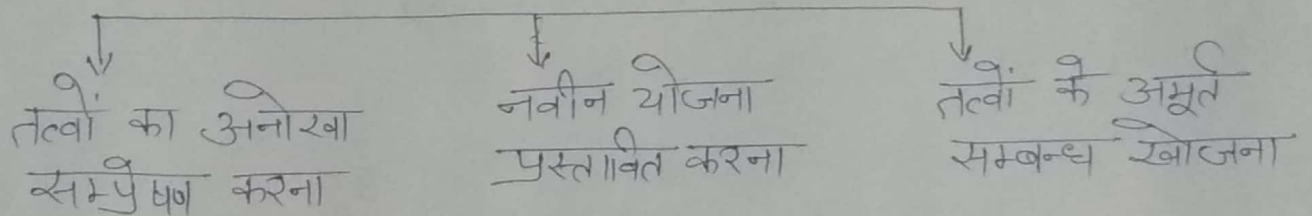 तत्वों का अनोखा
सम्प्रेषण करना
नवीन योजना
प्रस्तावित करना
तत्वों के अमूर्त
सम्बन्ध खोजना